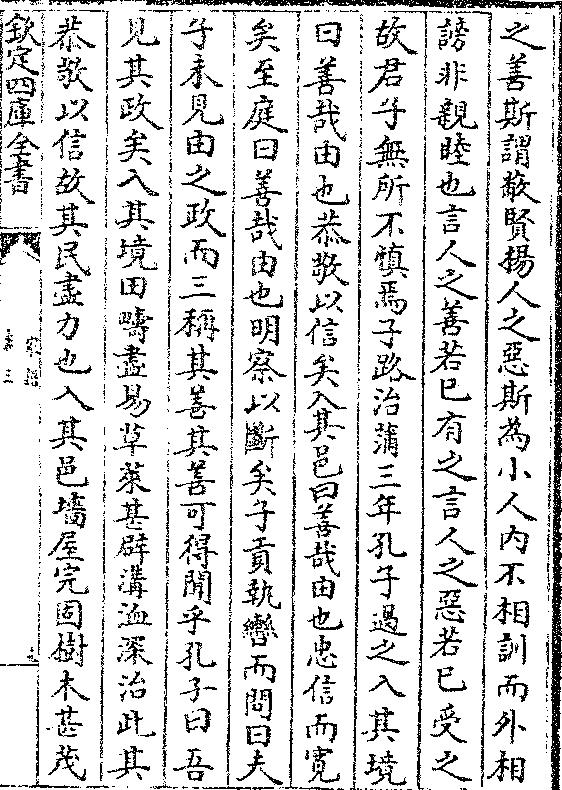 之善斯謂蔽賢揚人之惡斯為小人内不相訓而外相
謗非親睦也言人之善若已有之言人之惡若已受之
故君子無所不慎焉子路治蒲三年孔子過之入其境
曰善哉由也恭敬以信矣入其邑曰善哉由也忠信而寛
矣至庭曰善哉由也明察以斷矣子貢執轡而問曰夫
子未見由之政而三稱其善其善可得聞乎孔子曰吾
見其政矣入其境田疇盡易草萊甚辟溝洫深治此其
恭敬以信故其民盡力也入其邑墻屋完固樹木甚茂
欽定四庫全書
家語
卷三